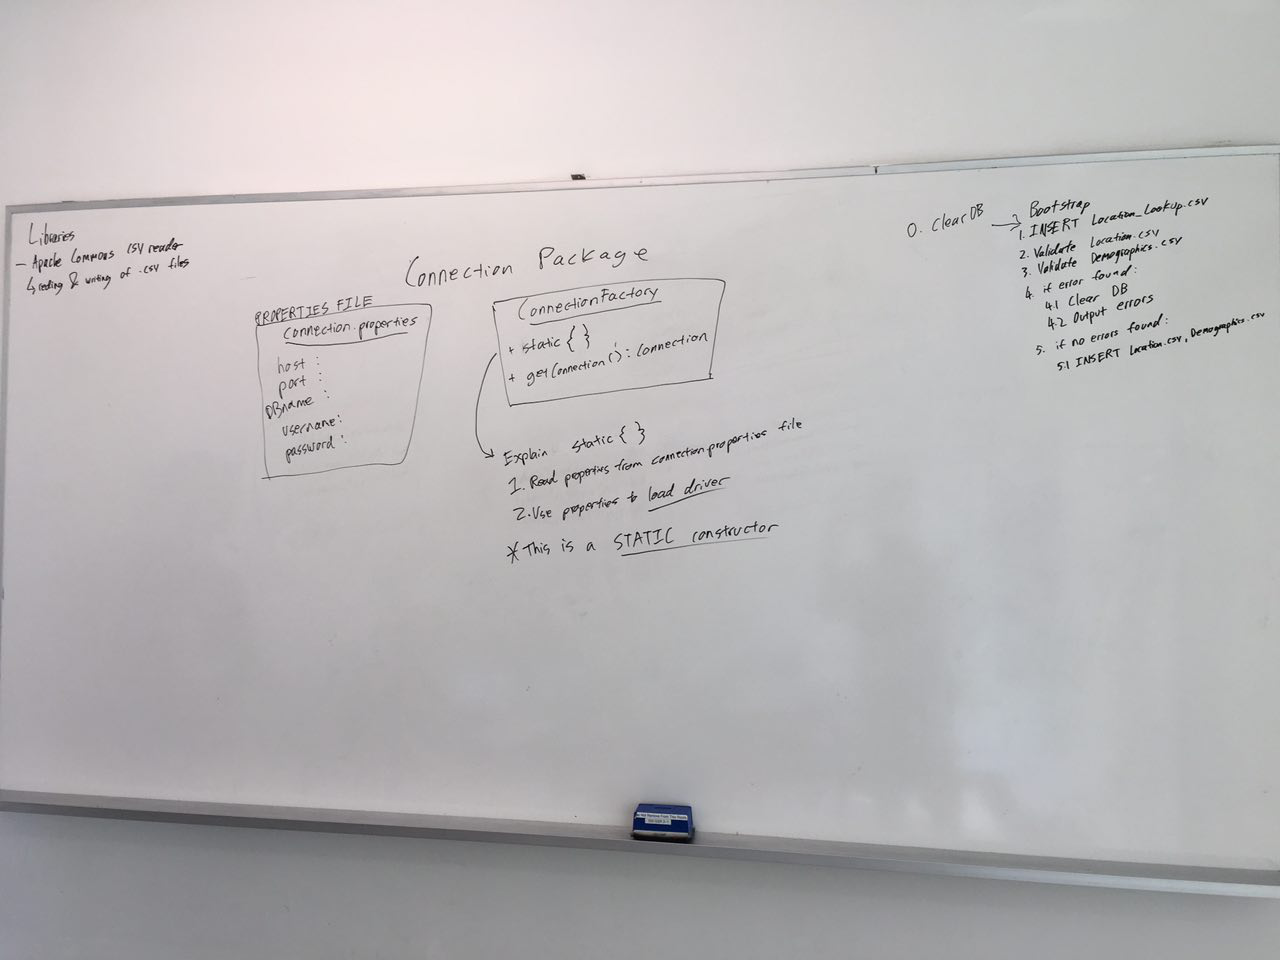 Libraries
- Apache Commons CSV reader
↳ reading & writing of .csv files
Connection Package
PROPERTIES FILE
Connection.properties
host :
port :
DBname :
username:
password :
ConnectionFactory
+ static { }
+ getConnection() : Connection
Explain static { }
1. Read properties from connection.properties file
2. Use properties to load driver
* This is a STATIC constructor
0. clear DB
Bootstrap
1. INSERT Location_Lookup.csv
2. Validate Location.csv
3. Validate Demographics.csv
4. if error found:
4.1 Clear DB
4.2 Output errors
5. if no errors found:
5.1 INSERT Location.csv, Demographics.csv